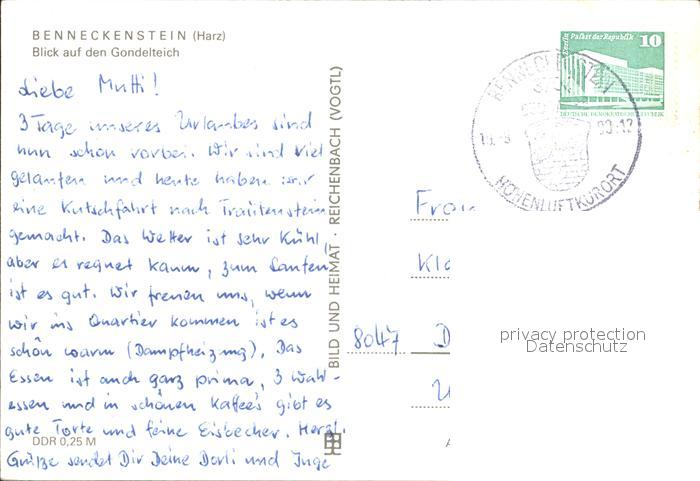 BENNECKENSTEIN (Harz)
Blick auf den Gondelteich
Liebe Mutti!
3 Tage unseres Urlaubes sind
nun schon vorbei. Wir sind viel
gelaufen und heute haben wir
eine Kutschfahrt nach Trautenstein
gemacht. Das Wetter ist sehr kühl,
aber es regnet kaum, zum Laufen
ist es gut. Wir freuen uns, wenn
wir ins Quartier kommen ist es
schön warm (Dampfheizung). Das
Essen ist auch ganz prima, 3 Wahl-
essen und in schönen Kaffee's gibt es
gute Torte und feine Eisbecher. Herzl.
Grüße sendet Dir Deine Dorli und Inge
DDR 0,25 M
BILD UND HEIMAT · REICHENBACH (VOGTL)
Berlin Palast der Republik 10
DEUTSCHE DEMOKRATISCHE REPUBLIK
BENNECKENSTEIN
HÖHENLUFTKURORT
Frau
Klo
8047 D
privacy protection
Datenschutz